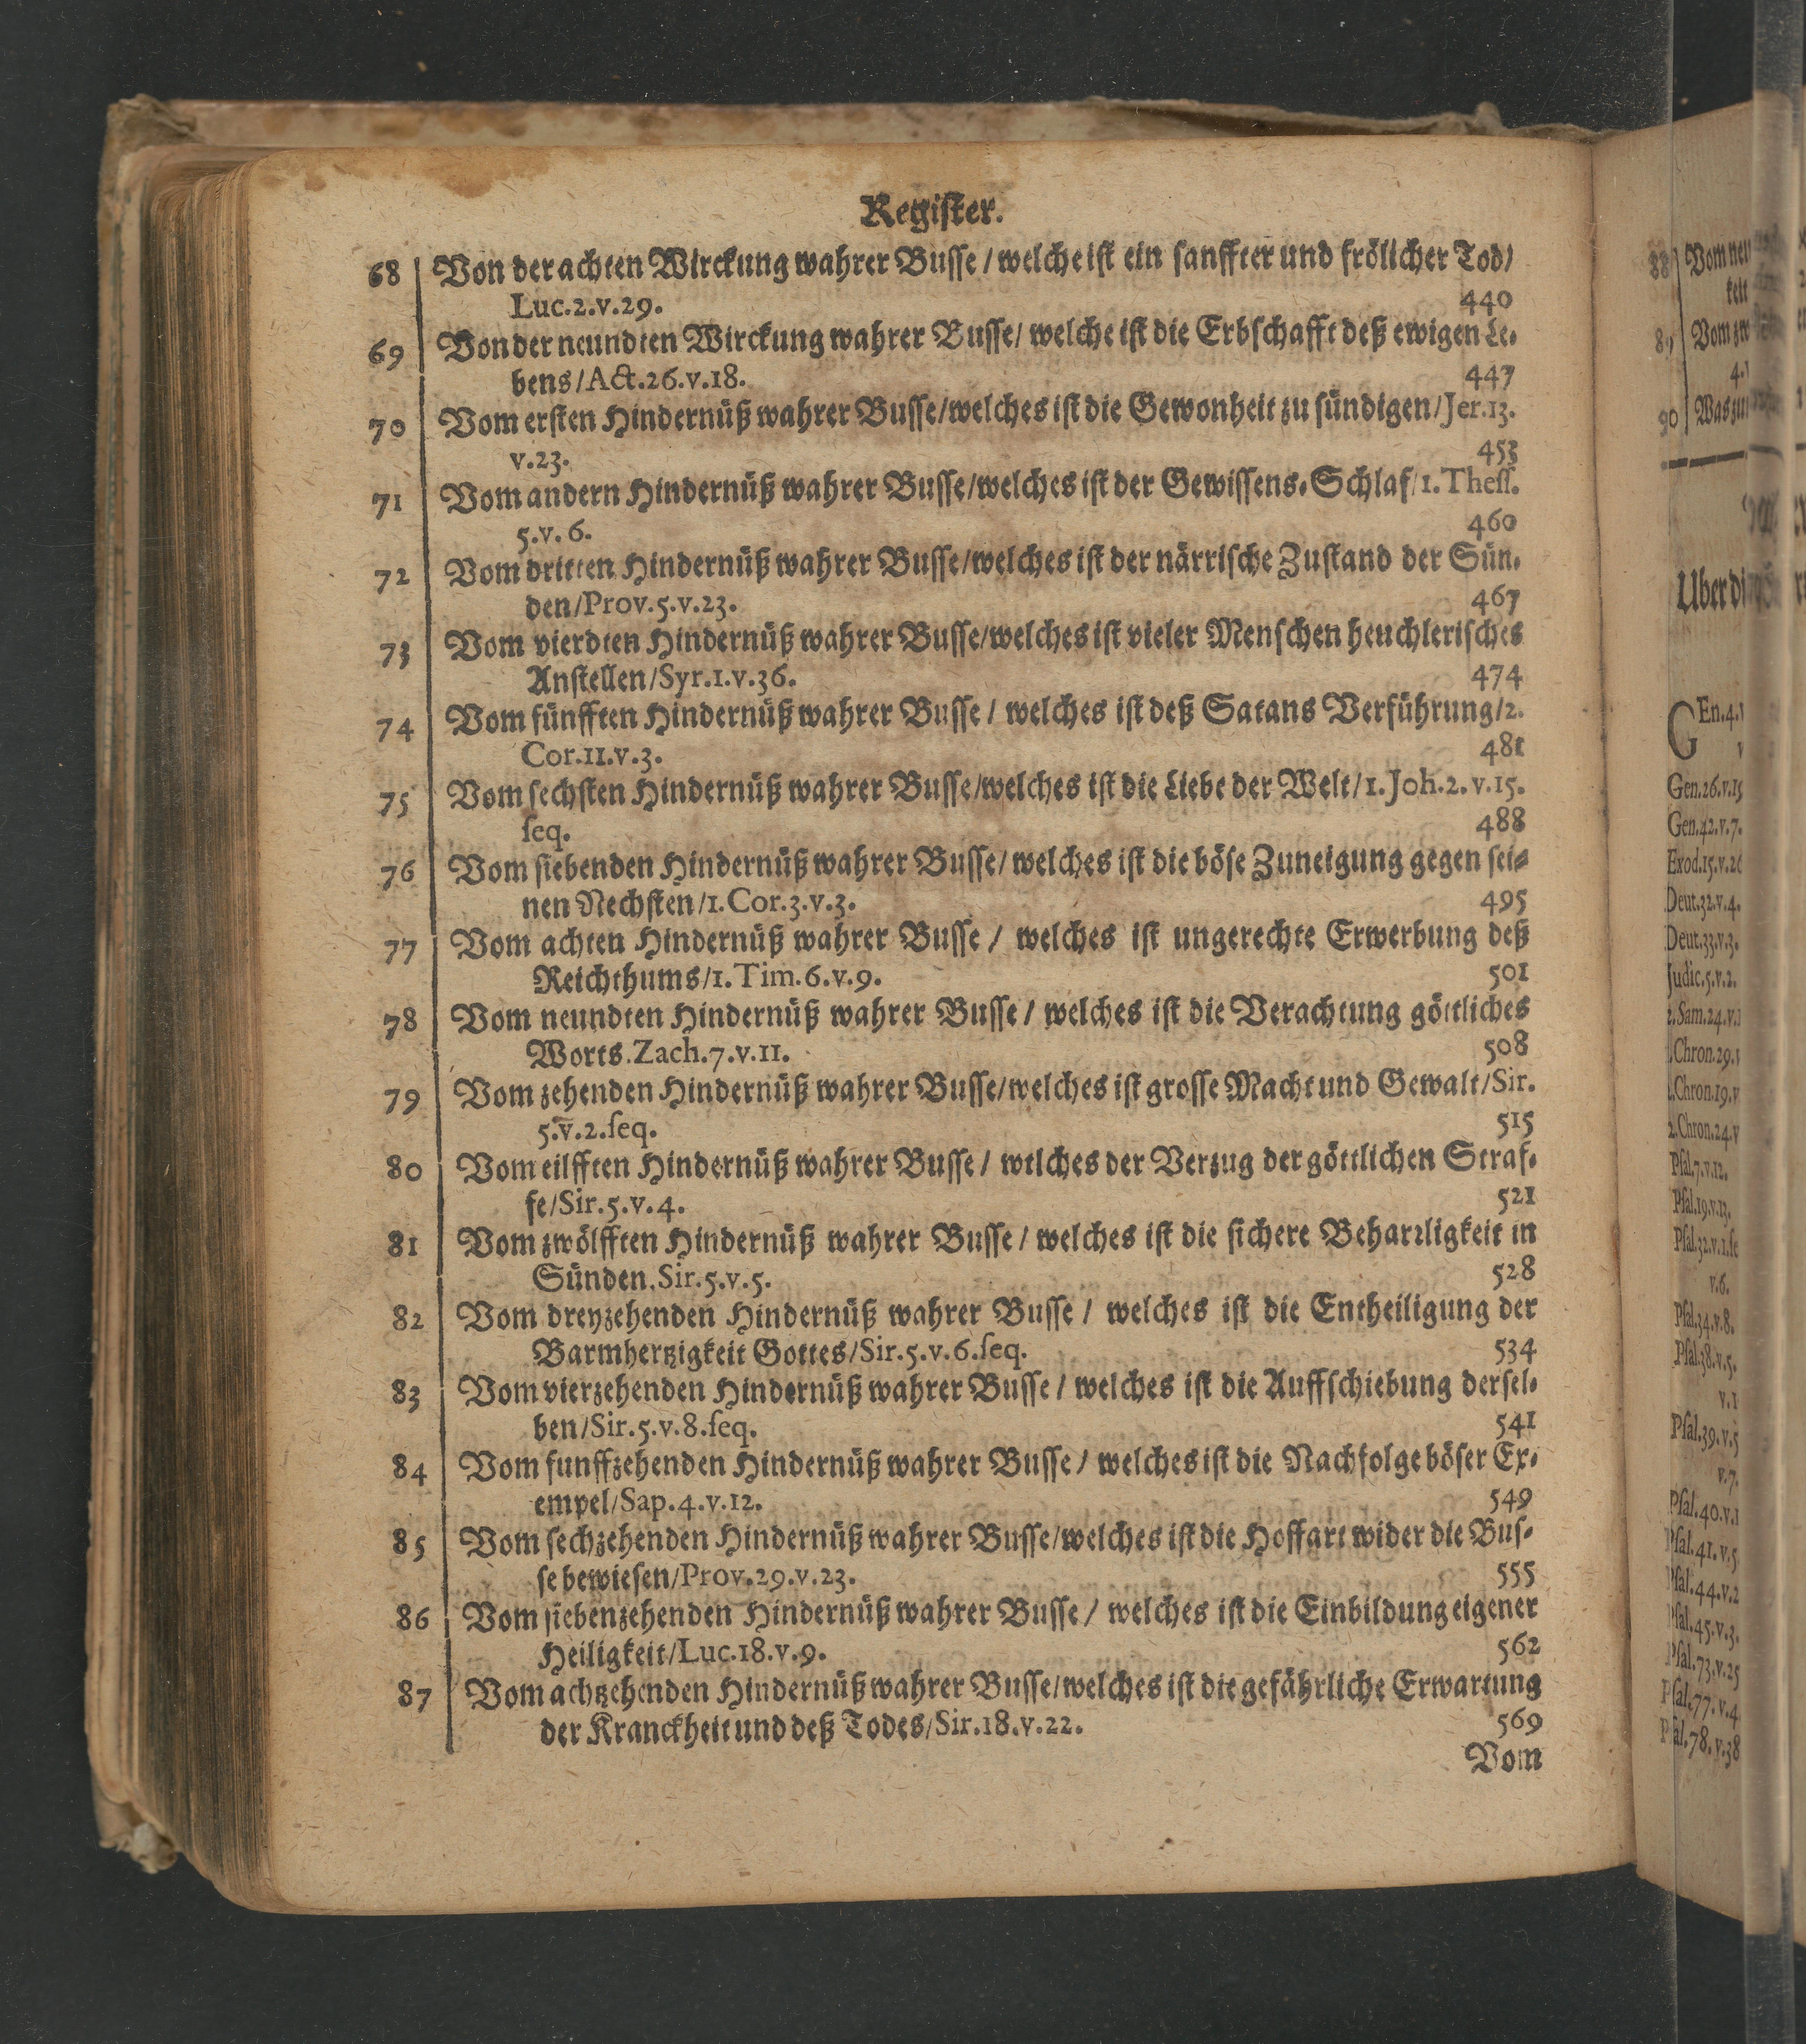 Register.
68 Von der achten Wirckung wahrer Busse / welche ist ein sanffter und frölicher Tod /
Luc. 2. v. 29. 440
69 Von der neundten Wirckung wahrer Busse / welche ist die Erbschafft deß ewigen Le-
bens / Act. 26. v. 18. 447
70 Vom ersten Hindernüß wahrer Busse / welches ist die Gewonheit zu sündigen / Jer. 13.
v. 23. 453
71 Vom andern Hindernüß wahrer Busse / welches ist der Gewissens-Schlaf / 1. Thess.
5. v. 6. 460
72 Vom dritten Hindernüß wahrer Busse / welches ist der närrische Zustand der Sün-
den / Prov. 5. v. 23. 467
73 Vom vierdten Hindernüß wahrer Busse / welches ist vieler Menschen heuchlerisches
Anstellen / Syr. 1. v. 36. 474
74 Vom fünfften Hindernüß wahrer Busse / welches ist deß Satans Verführung / 2.
Cor. 11. v. 3. 481
75 Vom sechsten Hindernüß wahrer Busse / welches ist die Liebe der Welt / 1. Joh. 2. v. 15.
seq. 488
76 Vom siebenden Hindernüß wahrer Busse / welches ist die böse Zuneigung gegen sei-
nen Nechsten / 1. Cor. 3. v. 3. 495
77 Vom achten Hindernüß wahrer Busse / welches ist ungerechte Erwerbung deß
Reichthums / 1. Tim. 6. v. 9. 501
78 Vom neundten Hindernüß wahrer Busse / welches ist die Verachtung göttliches
Worts. Zach. 7. v. 11. 508
79 Vom zehenden Hindernüß wahrer Busse / welches ist grosse Macht und Gewalt / Sir.
5. v. 2. seq. 515
80 Vom eilfften Hindernüß wahrer Busse / welches der Verzug der göttlichen Straf-
fe / Sir. 5. v. 4. 521
81 Vom zwölfften Hindernüß wahrer Busse / welches ist die sichere Beharrligkeit in
Sünden. Sir. 5. v. 5. 528
82 Vom dreyzehenden Hindernüß wahrer Busse / welches ist die Entheiligung der
Barmhertzigkeit Gottes / Sir. 5. v. 6. seq. 534
83 Vom vierzehenden Hindernüß wahrer Busse / welches ist die Auffschiebung dersel-
ben / Sir. 5. v. 8. seq. 541
84 Vom funffzehenden Hindernüß wahrer Busse / welches ist die Nachfolge böser Ex-
empel / Sap. 4. v. 12. 549
85 Vom sechzehenden Hindernüß wahrer Busse / welches ist die Hoffart wider die Bus-
se bewiesen / Prov. 29. v. 23. 555
86 Vom siebenzehenden Hindernüß wahrer Busse / welches ist die Einbildung eigener
Heiligkeit / Luc. 18. v. 9. 562
87 Vom achtzehenden Hindernüß wahrer Busse / welches ist die gefährliche Erwartung
der Kranckheit und deß Todes / Sir. 18. v. 22. 569
Vom
88 Vom neu
keit
89 Vom zw
4.
90 Was zu
Uber di
GEn. 4.
Gen. 26. v. 15
Gen. 42. v. 7.
Exod. 15. v. 26
Deut. 32. v. 4.
Deut. 33. v. 3.
Judic. 5. v. 2.
2. Sam. 24. v.
Chron. 29.
Chron. 19. v
2. Chron. 24. v
Psal. 7. v. 12.
Psal. 19. v. 13.
Psal. 32. v. 1. se
v. 6.
Psal. 34. v. 8.
Psal. 38. v. 5.
v. 1
Psal. 39. v. 5
v. 7.
Psal. 40. v. 1
Psal. 41. v. 5
Psal. 44. v. 2
Psal. 45. v. 3.
Psal. 73. v. 25
Psal. 77. v. 4
Psal. 78. v. 38